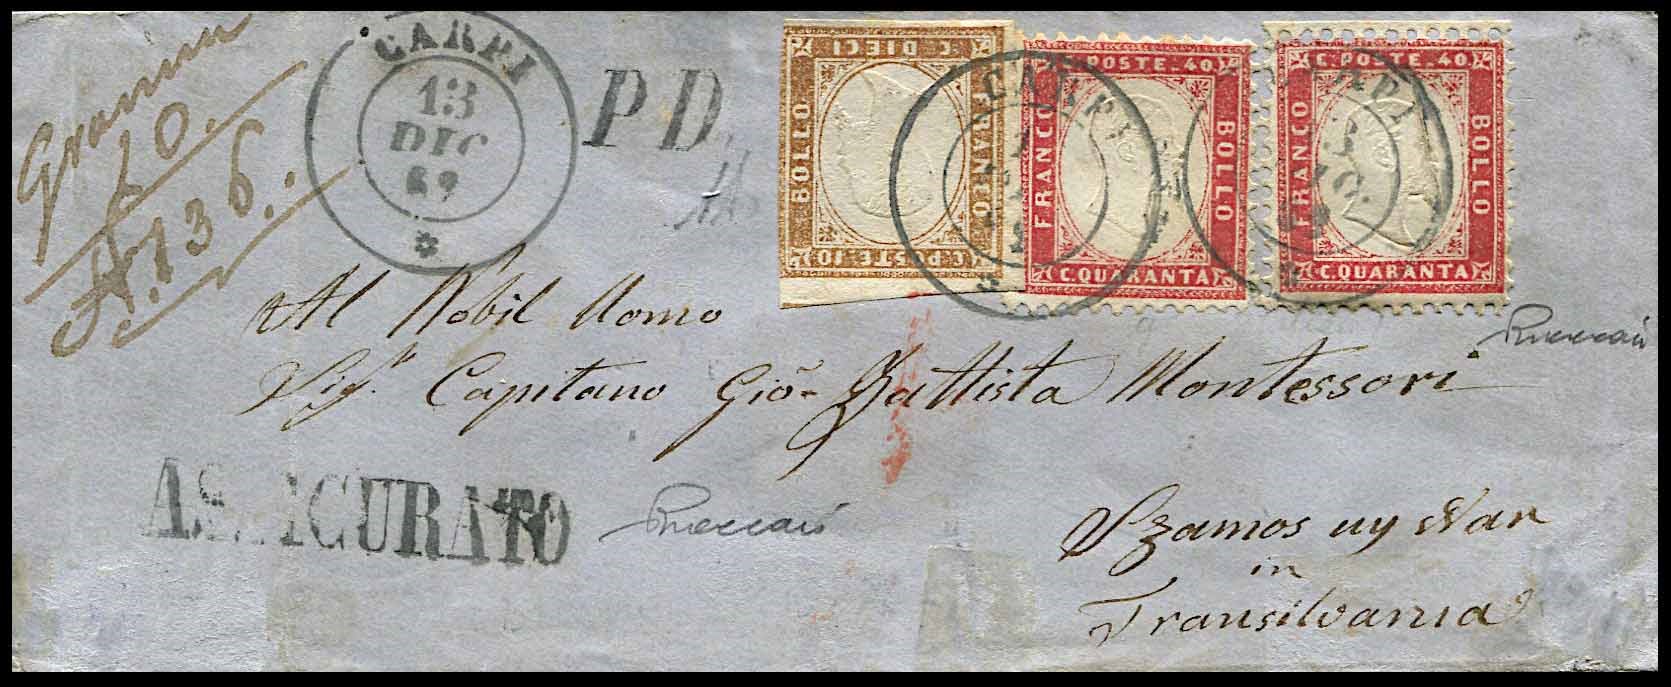 Grammi
10.
N. 136.
CARPI
13
DIC
62
P D
C. DIECI
BOLLO
FRANCO
C. POSTE. 10
C. POSTE. 40
FRANCO
BOLLO
C. QUARANTA
CARPI
C. POSTE. 40
FRANCO
BOLLO
C. QUARANTA
Al Nobil Uomo
Sigr. Capitano Gio- Battista Montessori
ASSICURATO
Szamos uy Var
in
Transilvania